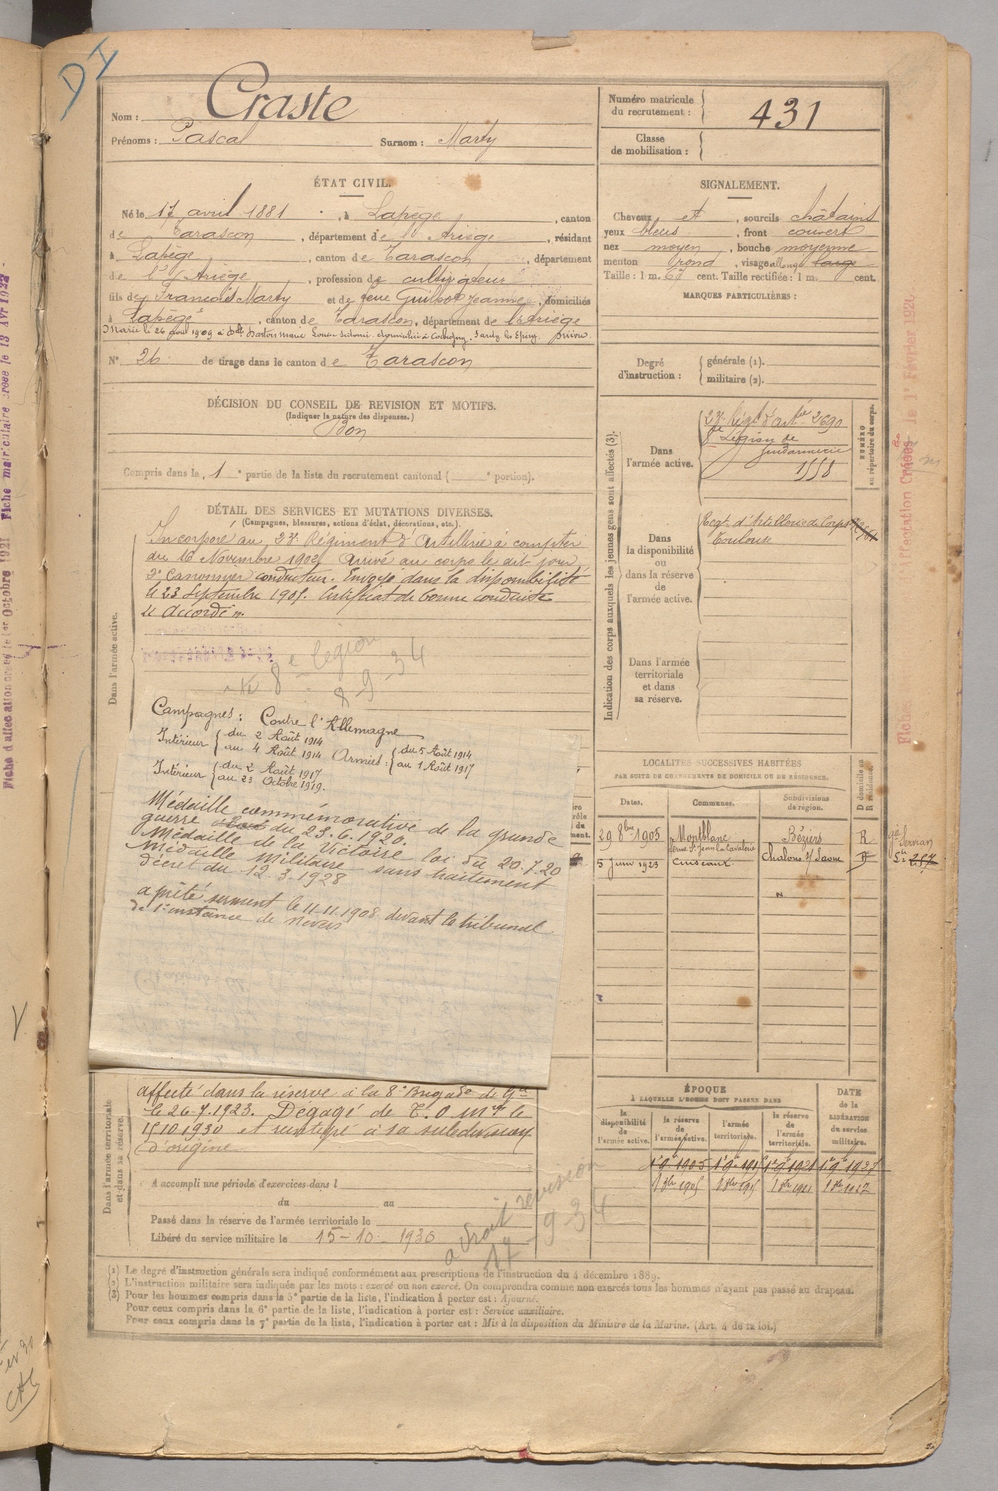 D I
Nom : Craste
Prénoms : Pascal Surnom : Marty
Numéro matricule du recrutement : 431
Classe de mobilisation :
ÉTAT CIVIL.
Né le 17 avril 1881, à Lapège, canton
de Tarascon, département de l'Ariège, résidant
à Lapège, canton de Tarascon, département
de l'Ariège, profession de cultivateur
fils de François Marty et de feue Guilhot Jeanne, domiciliés
à Lapège, canton de Tarascon, département de l'Ariège
Marié le 26 avril 1909 à
N° 26 de tirage dans le canton de Tarascon
SIGNALEMENT.
Cheveux et, sourcils châtains
yeux bleus, front couvert
nez moyen, bouche moyenne
menton rond, visage allongé large
Taille : 1 m. 67 cent. Taille rectifiée : 1 m. cent.
MARQUES PARTICULIÈRES :
Degré d'instruction : générale (1).
militaire (2).
DÉCISION DU CONSEIL DE REVISION ET MOTIFS.
(Indiquer la nature des dispenses.)
Bon
Compris dans la 1e partie de la liste du recrutement cantonal ( e portion).
DÉTAIL DES SERVICES ET MUTATIONS DIVERSES.
(Campagnes, blessures, actions d'éclat, décorations, etc.).
Dans l'armée active.
Incorporé au 23e Régiment d'Artillerie à compter
du 16 Novembre 1902 Arrivé au corps le dit jour
2e canonnier conducteur. Envoyé dans la disponibilité
le 23 Septembre 1905. Certificat de bonne conduite
accordé
8e légion
8 9 34
Campagnes : Contre l'Allemagne
Intérieur du 2 Août 1914
au 4 Août 1914
Armées : du 5 Août 1914
au 1 Août 1917
Intérieur du 2 Août 1917
au 23 Octobre 1919.
Médaille commémorative de la grande
guerre du 23.6.1920.
Médaille de la Victoire loi du 20.7.20
Médaille Militaire sans traitement
décret du 12.3.1928
a prêté serment le 11.11.1908 devant le tribunal
de 1e instance de Nevers
Dans l'armée territoriale et dans sa réserve.
affecté dans la réserve à la 8e Brigade de Gie
le 26.7.1923. Dégagé de T.O. Mre le
15.10.1930 et réintégré à sa subdivision
d'origine
A accompli une période d'exercices dans l
du au
Passé dans la réserve de l'armée territoriale le
Libéré du service militaire le 15-10-1930
a droit revision
17 934
Indication des corps auxquels les jeunes gens sont affectés (3).
Dans l'armée active.
23e Régt d'Artie 2690
8e Légion de
Gendarmerie
1558
NUMÉRO au répertoire du corps.
Dans la disponibilité ou dans la réserve de l'armée active.
Régt d'Artillerie de Corps
Toulouse
Dans l'armée territoriale et dans sa réserve.
LOCALITÉS SUCCESSIVES HABITÉES
PAR SUITE DE CHANGEMENTS DE DOMICILE OU DE RÉSIDENCE.
Dates. Communes. Subdivisions de région. D domicile ou R résidence.
29 8bre 1905 Montblanc Béziers R
5 Juin 1923 Cuiseaux Chalons s/ Saone
ÉPOQUE
À LAQUELLE L'HOMME DOIT PASSER DANS
la disponibilité de l'armée active. la réserve de l'armée active. l'armée territoriale. la réserve de l'armée territoriale.
DATE de la LIBÉRATION du service militaire.
(1) Le degré d'instruction générale sera indiqué conformément aux prescriptions de l'instruction du 4 décembre 1889.
(2) L'instruction militaire sera indiquée par les mots : exercé ou non exercé. On comprendra comme non exercés tous les hommes n'ayant pas passé au drapeau.
(3) Pour les hommes compris dans la 5e partie de la liste, l'indication à porter est : Ajourné.
Pour ceux compris dans la 6e partie de la liste, l'indication à porter est : Service auxiliaire.
Pour ceux compris dans la 7e partie de la liste, l'indication à porter est : Mis à la disposition du Ministre de la Marine. (Art. 4 de la loi.)